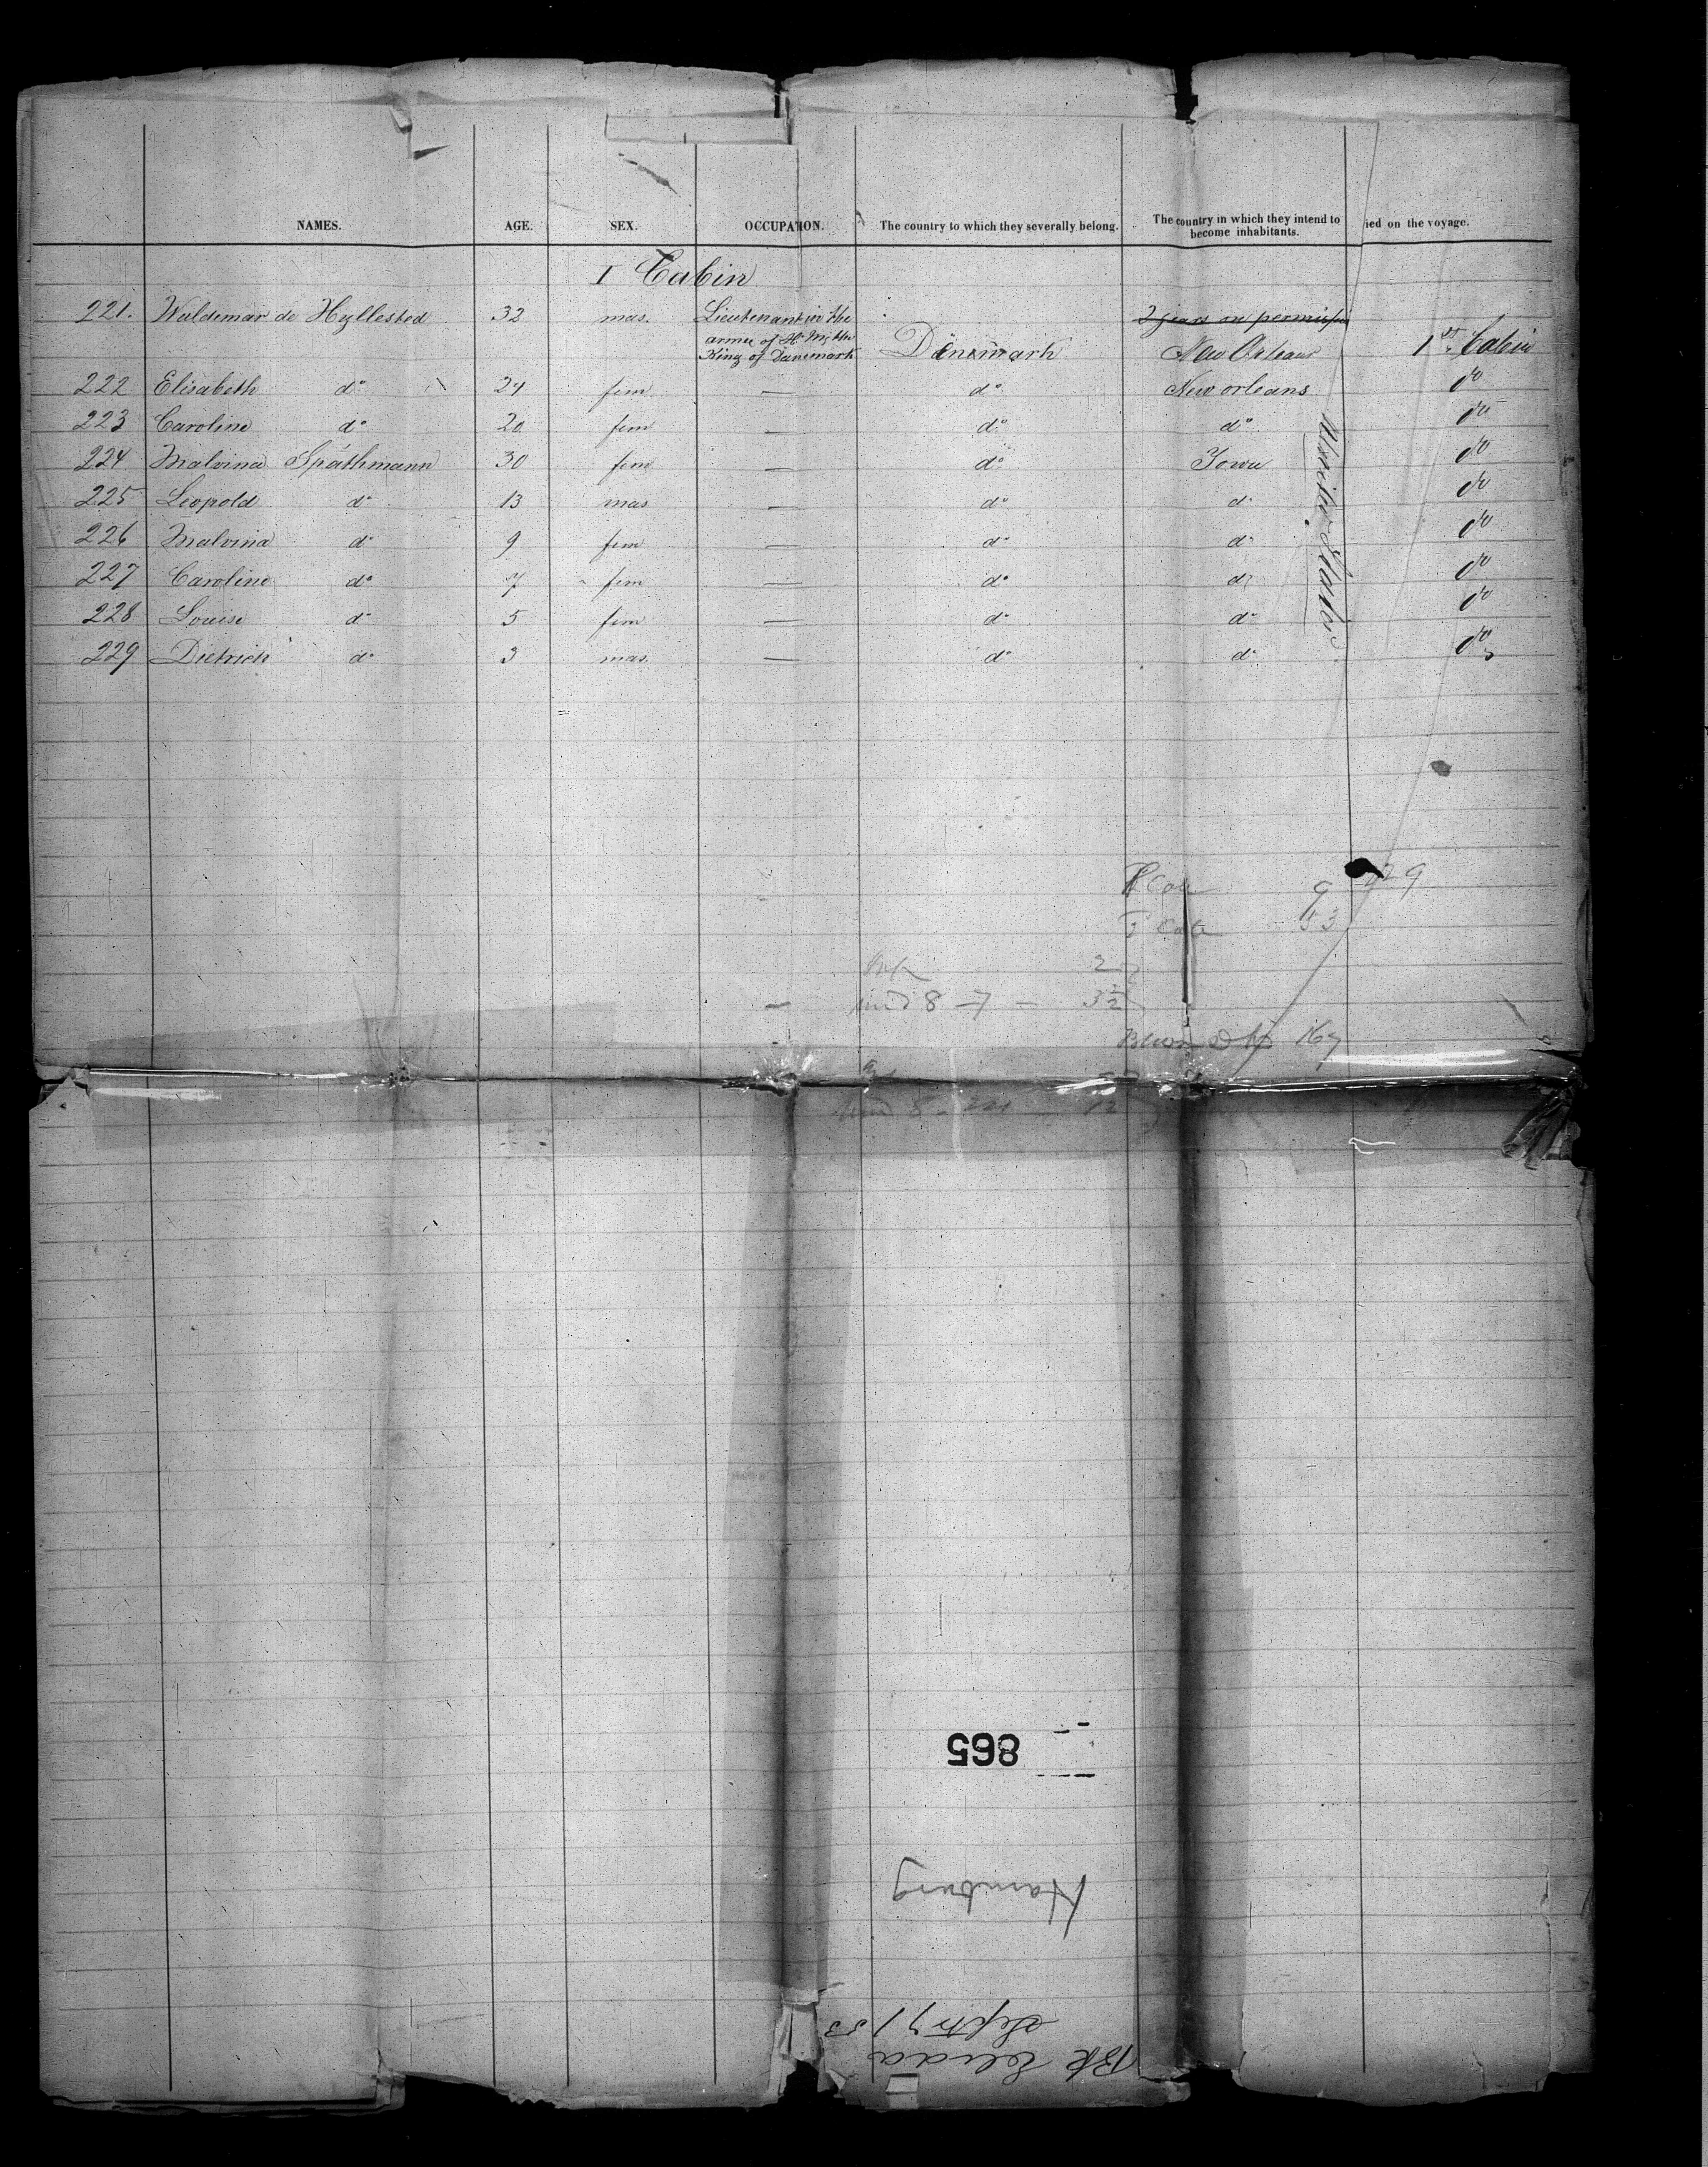 NAMES. AGE. SEX. OCCUPATION. The country to which they severally belong. The country in which they intend to become inhabitants. ied on the voyage.
I Cabin
221. Waldemar de Hyllested 32 mas. Lieutenant in the armee of H. M. the King of Danemark Denemark 2 years on permission New Orleans 1st Cabin
222 Elisabeth do 24 fem — do New orleans do
223 Caroline do 20 fem — do do do
224 Malvina Späthmann 30 fem — do Iowa do
225 Leopold do 13 mas — do do do
226 Malvina do 9 fem — do do do
227 Caroline do 7 fem — do do do
228 Louise do 5 fem — do do do
229 Dietrich do 3 mas. — do do do
United States
9 229
53
8 7 = 3½
167
865
Hamburg
Sept 7/53
Bk